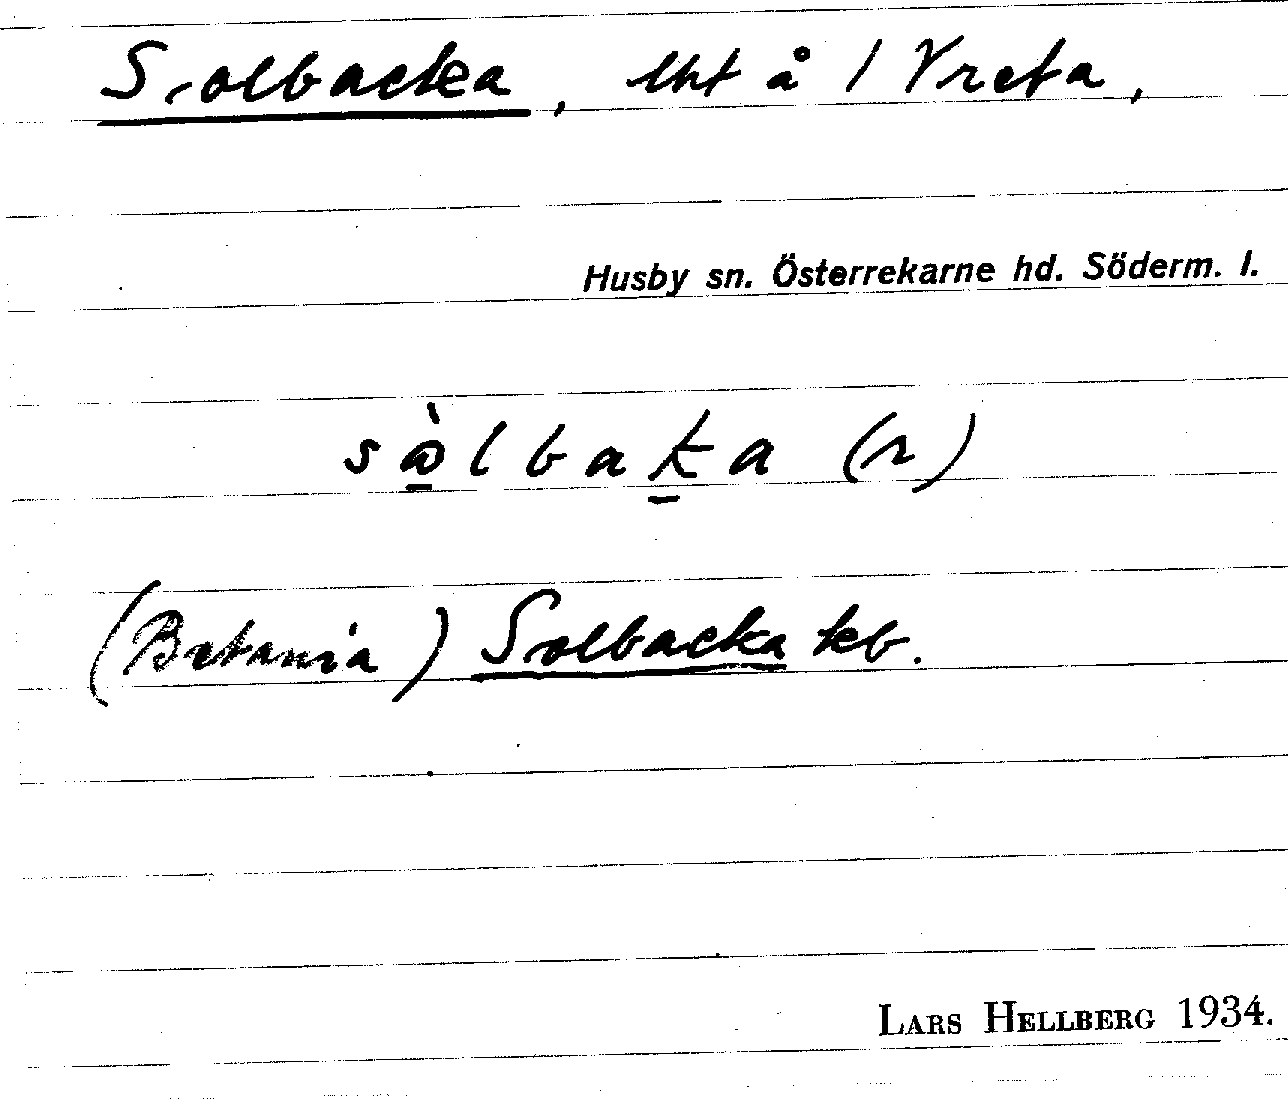 Solbacka, lht å 1 Vreta,
Husby sn. Österrekarne hd. Söderm. l.
sòlbaka (r)
(Betania) Solbacka kb.
LARS HELLBERG 1934.